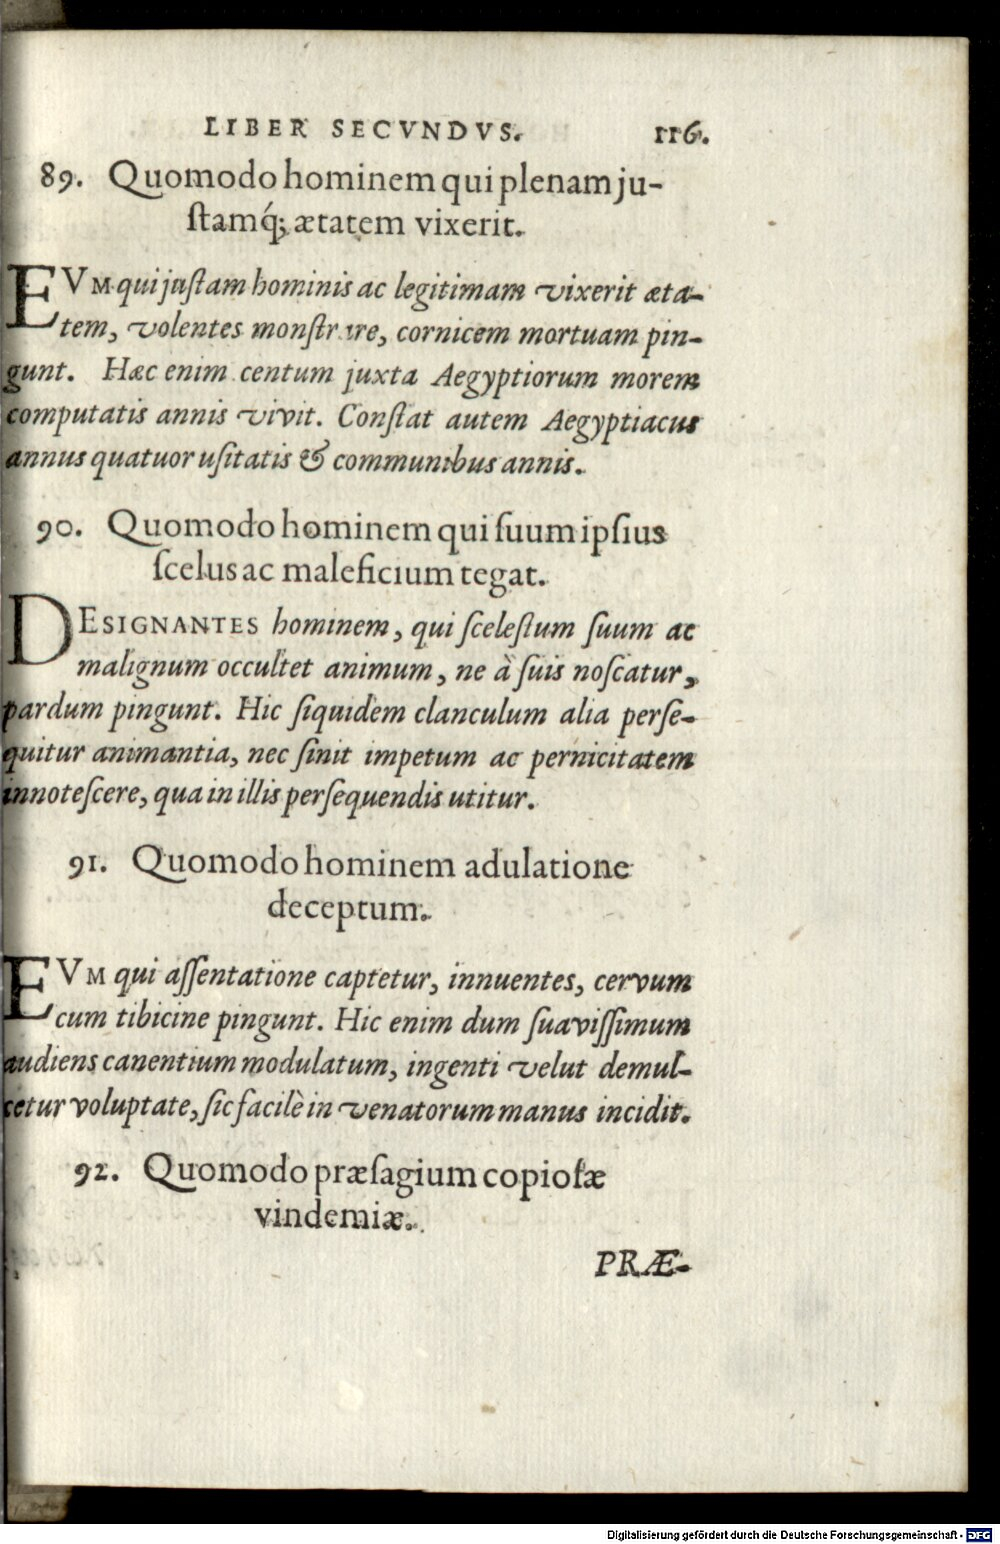 LIBER SECVNDVS. 116.
89. Quomodo hominem qui plenam ju-
ſtamq́; ætatem vixerit.
EVM qui juſtam hominis ac legitimam vixerit æta-
tem, volentes monſtrare, cornicem mortuam pin-
gunt. Hæc enim centum juxta Aegyptiorum morem
computatis annis vivit. Conſtat autem Aegyptiacus
annus quatuor uſitatis & communibus annis.
90. Quomodo hominem qui ſuum ipſius
ſcelus ac maleficium tegat.
DESIGNANTES hominem, qui ſceleſtum ſuum ac
malignum occultet animum, ne à ſuis noſcatur,
pardum pingunt. Hic ſiquidem clanculum alia perſe-
quitur animantia, nec ſinit impetum ac pernicitatem
innoteſcere, qua in illis perſequendis utitur.
91. Quomodo hominem adulatione
deceptum.
EVM qui aſſentatione captetur, innuentes, cervum
cum tibicine pingunt. Hic enim dum ſuaviſſimum
audiens canentium modulatum, ingenti velut demul-
cetur voluptate, ſic facilè in venatorum manus incidit.
92. Quomodo præſagium copioſæ
vindemiæ.
PRÆ-
Digitalisierung gefördert durch die Deutsche Forschungsgemeinschaft - DFG